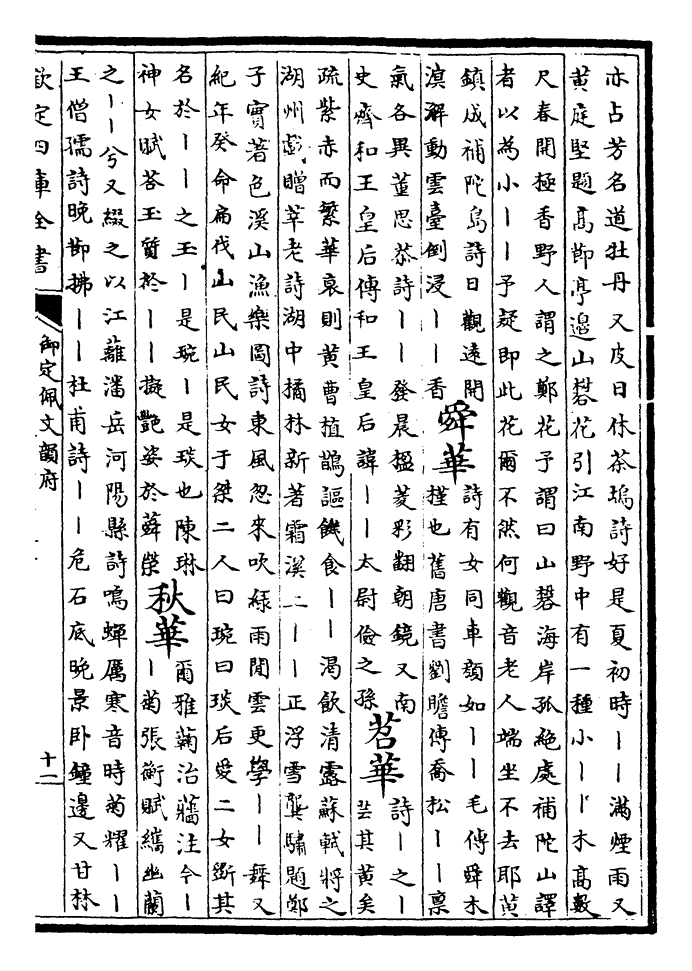 亦占芳名道牡丹又皮日休茶塢詩好是夏初時丨丨滿煙雨又
黄庭堅題高節亭邉山礬花引江南野中有一種小丨丨木高數
尺春開極香野人謂之鄭花予謂曰山礬海岸孤絶處補陀山譯
者以為小丨丨予疑即此花爾不然何觀音老人端坐不去耶黄
鎮成補陀島詩日觀遠開
溟解動雲臺倒浸丨丨香
舜華
詩有女同車顔如丨丨毛傳舜木
槿也舊唐書劉瞻傳喬松丨丨禀
氣各異董思恭詩丨丨發晨楹菱彩翻朝鏡又南
史齊和王皇后傳和王皇后諱丨丨太尉儉之孫
苕華
詩丨之丨
芸其黄矣
疏紫赤而繁華衰則黄曹植鵲謳饑食丨丨渴飲清露蘇軾將之
湖州戲贈莘老詩湖中橘林新著霜溪上丨丨正浮雪龔驌題鄭
子實著色溪山漁樂圖詩東風忽來吹緑雨閒雲更學丨丨舞又
紀年癸命扁伐山民山民女于桀二人曰琬曰琰后愛二女斵其
名於丨丨之玉丨是琬丨是琰也陳琳
神女賦荅玉質於丨丨擬艷姿於蕣榮
秋華
爾雅蘜治蘠注今丨
丨菊張衡賦纗幽蘭
之丨丨兮又綴之以江蘺潘岳河陽縣詩鳴蟬厲寒音時菊耀丨丨
王僧孺詩晚節拂丨丨杜甫詩丨丨危石底晚景卧鐘邊又甘林
欽定四庫全書
御定佩文韻府
十一